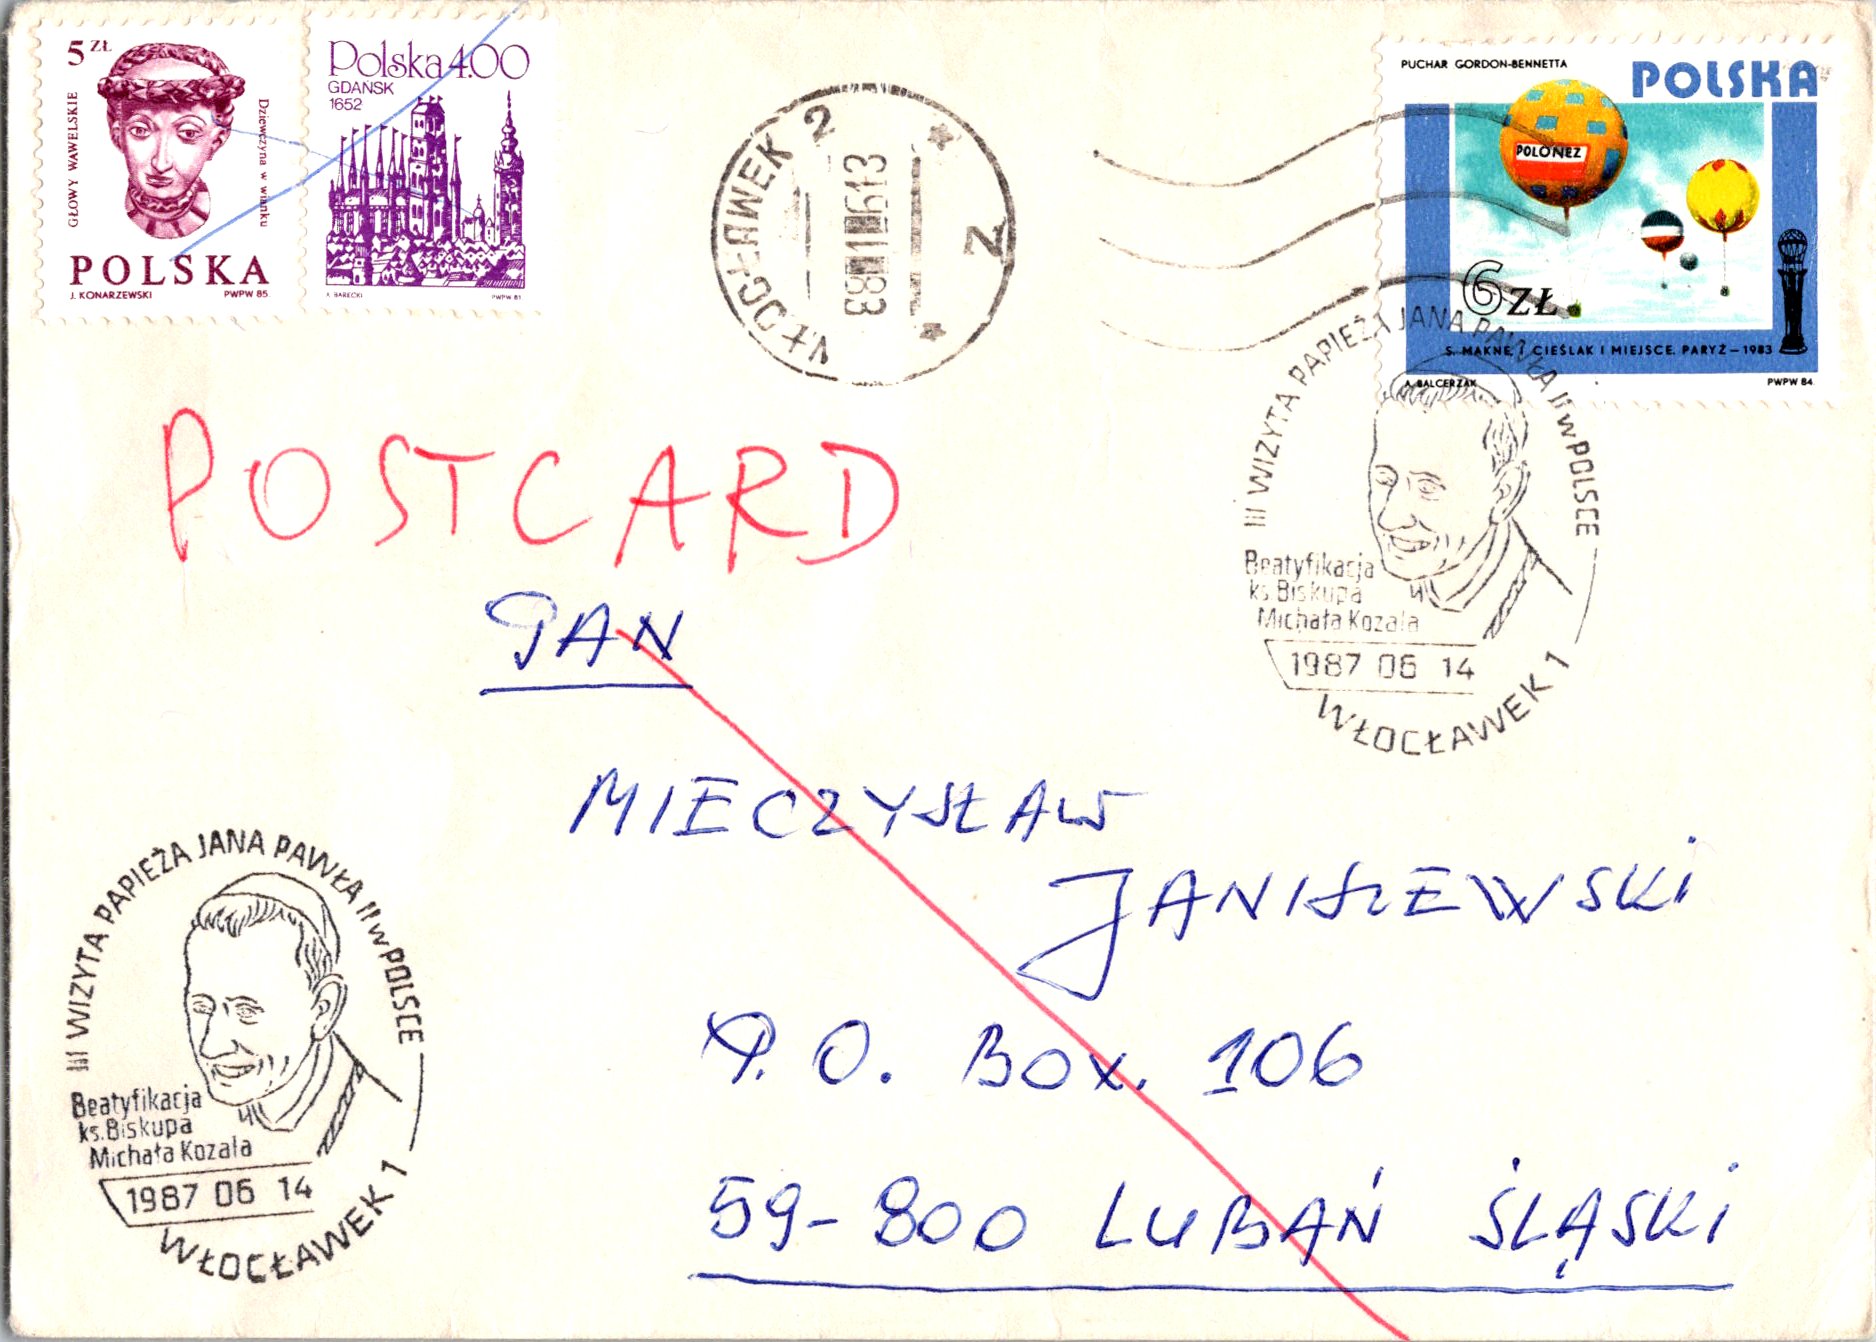 5 ZŁ
GŁOWY WAWELSKIE
Dziewczyna w wianku
POLSKA
J. KONARZEWSKI PWPW 85
Polska 4.00
GDAŃSK
1652
A. BARECKI PWPW 81
WŁOCŁAWEK 2
Z
PUCHAR GORDON-BENNETTA
POLSKA
POLONEZ
6 ZŁ
S. MAKNE, I. CIEŚLAK I MIEJSCE. PARYŻ – 1983
A. BALCERZAK PWPW 84
III WIZYTA PAPIEŻA JANA PAWŁA II w POLSCE
Beatyfikacja
ks. Biskupa
Michała Kozala
1987 06 14
WŁOCŁAWEK 1
POSTCARD
PAN
MIECZYSŁAW
JANISZEWSKI
P.O. BOX. 106
59-800 LUBAŃ ŚLĄSKI
III WIZYTA PAPIEŻA JANA PAWŁA II w POLSCE
Beatyfikacja
ks. Biskupa
Michała Kozala
1987 06 14
WŁOCŁAWEK 1